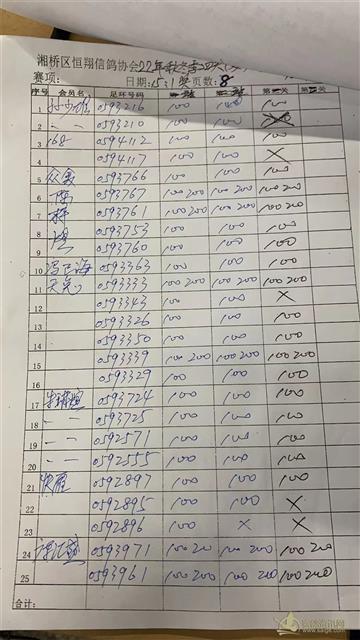 湘桥区恒翔信鸽协会22年秋冬季四关
赛项: 日期:15:1 页数:8
序号 会员名 足环号码 第一关 第二关 第三关 第四关
1 0593216 100 100 100
2 〃 0593210 100 100
3 168 0594112 100 100 100
4 0594117 100 100 ×
5 众友 0593766 100 100 100
6 0593767 100 200 100 200 100 200
7 0593761 100 200 100 200 100 200
8 0593753 100 100 100
9 0593760 100 100 100
10 0593363 100 100 100
11 天龙 0593333 100 200 100 200 100 200
12 0593343 100 100 ×
13 0593326 100 100 100
14 0593350 100 100 100
15 0593339 100 200 100 200 100 200
16 0593329 100 100 100
17 0593724 100 100 100
18 〃 0593725 100 100 100
19 〃 0592571 100 100 100
20 〃 0592555 100 100 100
21 0592897 100 100 100
22 0592895 100 100 ×
23 0592896 100 × ×
24 0593971 100 200 100 200 100 200
25 0593961 100 200 100 200 100 200
合计: